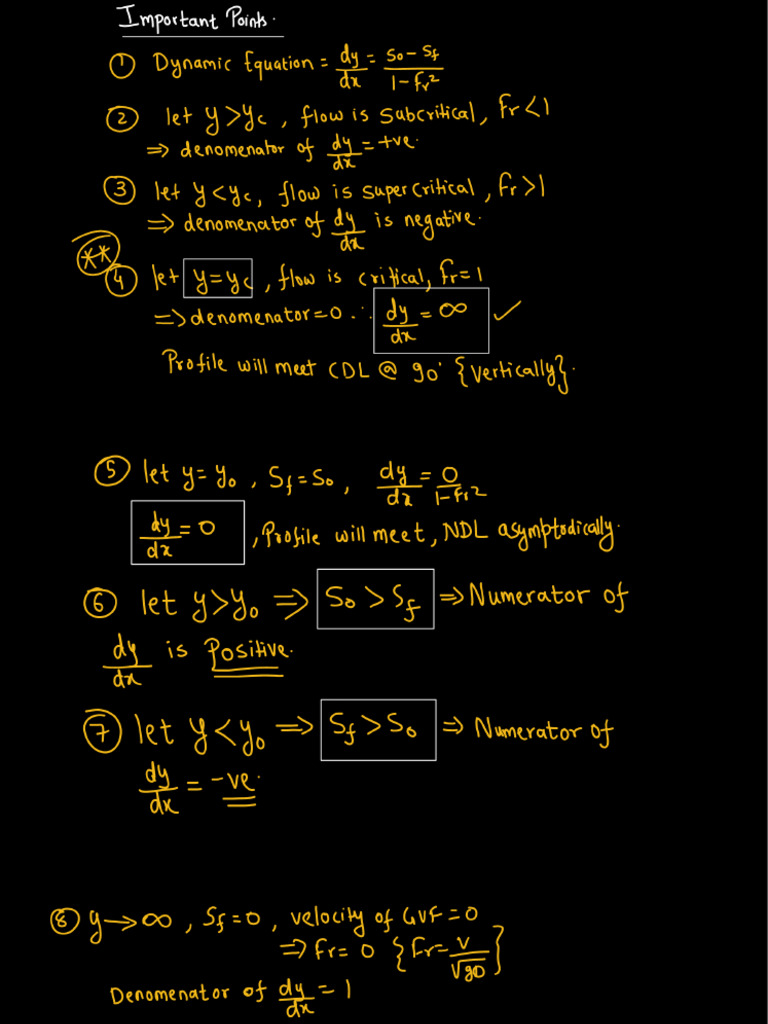 Important Points.
① Dynamic Equation = dy/dx = (So - Sf)/(1 - Fr²)
② let y > yc , flow is Subcritical, Fr < 1
⇒ denomenator of dy/dx = +ve.
③ let y < yc, flow is supercritical , Fr > 1
⇒ denomenator of dy/dx is negative.
**
④ let y = yc , flow is critical, Fr = 1
⇒ denomenator = 0 ∴ dy/dx = ∞ ✓
Profile will meet CDL @ 90° {vertically}.
⑤ let y = yo , Sf = So , dy/dx = 0/(1 - Fr²)
dy/dx = 0 , Profile will meet, NDL asymptodically.
⑥ let y > yo ⇒ So > Sf ⇒ Numerator of
dy/dx is Positive.
⑦ let y < yo ⇒ Sf > So ⇒ Numerator of
dy/dx = -ve.
⑧ y → ∞ , Sf = 0 , velocity of GVF = 0
⇒ Fr = 0 {Fr = v/√gD}
Denomenator of dy/dx = 1